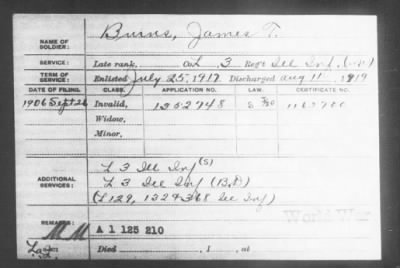 NAME OF SOLDIER: Burns, James T.
SERVICE: Late rank, Co. L 3 Reg't Ill Inf.
TERM OF SERVICE: Enlisted July 25, 1917 Discharged Aug 11, 1919
DATE OF FILING. CLASS. APPLICATION NO. LAW. CERTIFICATE NO.
1906 Sept 26 Invalid, 1352748
Widow,
Minor,
ADDITIONAL SERVICES: L 3 Ill Inf (S)
L 3 Ill Inf
(L 129, Ill Inf)
World War
REMARKS: A 1 125 210
Died , 1 , at